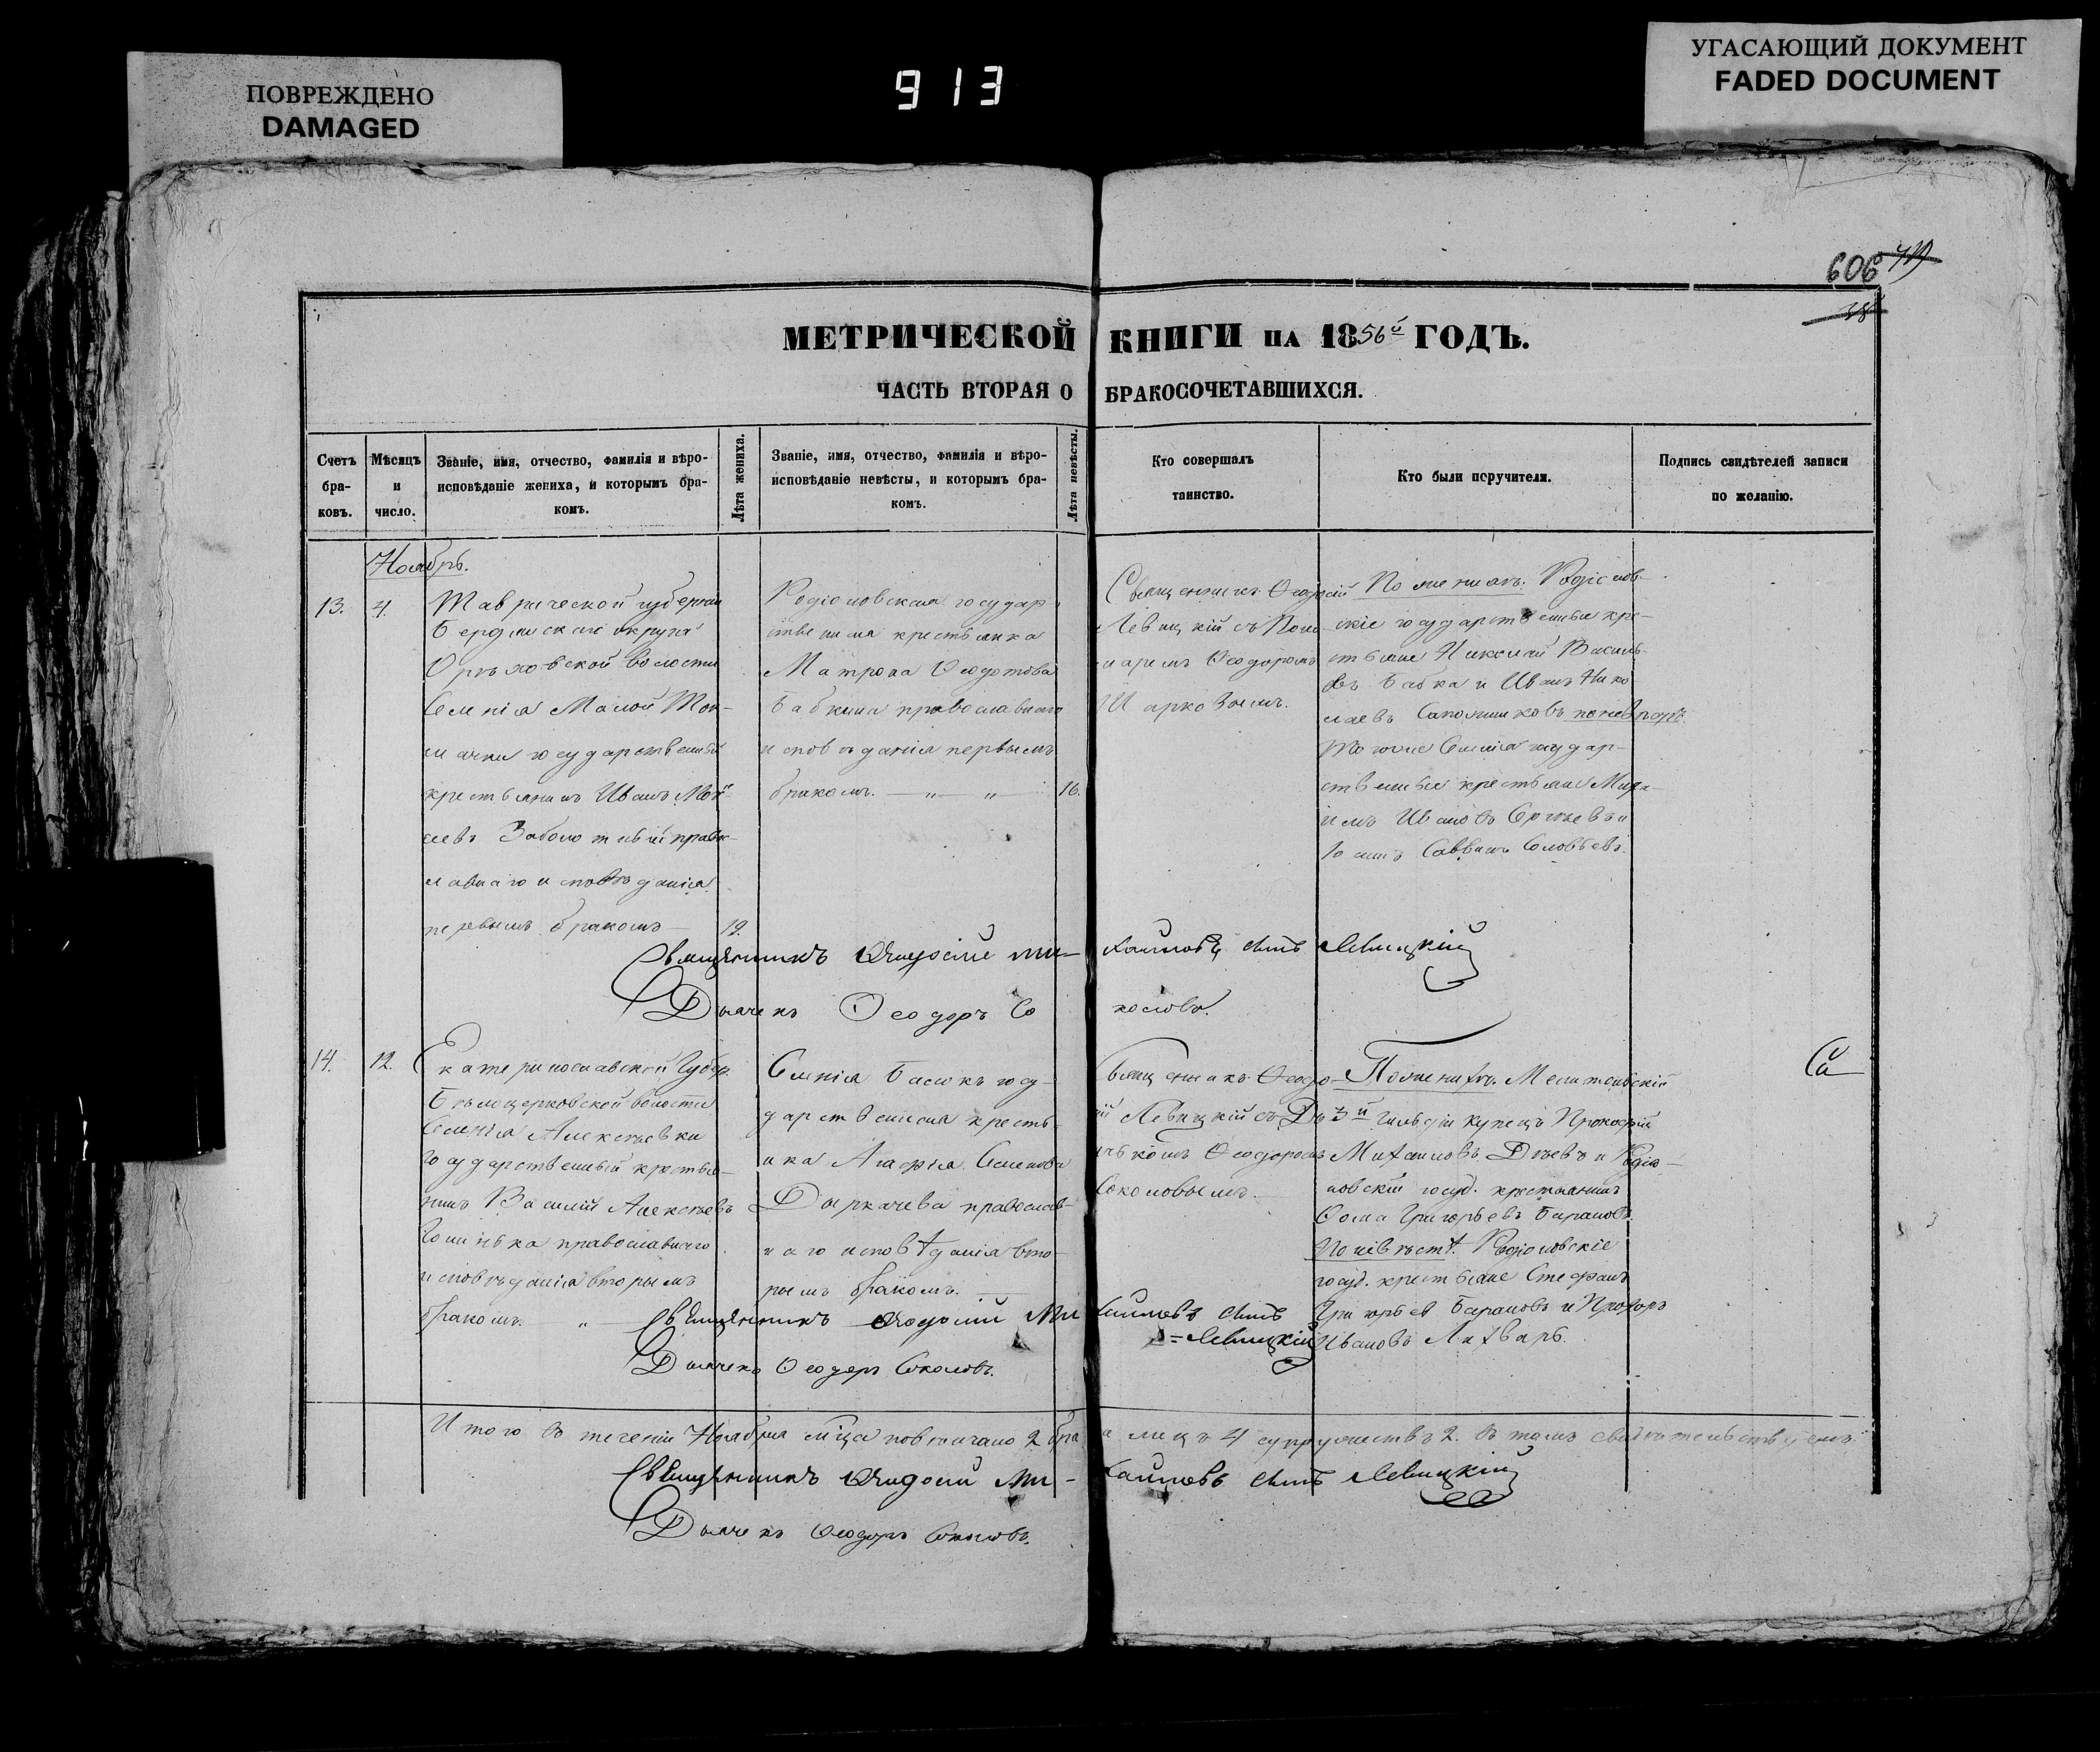 ПОВРЕЖДЕНО
DAMAGED
913
УГАСАЮЩИЙ ДОКУМЕНТ
FADED DOCUMENT
606
МЕТРИЧЕСКОЙ КНИГИ на 1856й ГОДЪ.
ЧАСТЬ ВТОРАЯ О БРАКОСОЧЕТАВШИХСЯ.
Счетъ
бра-
ковъ.
Мѣсяцъ
и
число.
Званіе, имя, отчество, фамилія и вѣро-
исповѣданіе жениха, и которымъ бра-
комъ.
Лѣта жениха.
Званіе, имя, отчество, фамилія и вѣро-
исповѣданіе невѣсты, и которымъ бра-
комъ.
Лѣта невѣсты.
Кто совершалъ
таинство.
Кто были поручители.
Подпись свидѣтелей записи
по желанію.
Ноябрь.
13.
4.
Таврической губерніи
Бердянскаго округа
Орѣховской волости
Селенія Малой Ток-
мачки государственный
крестьянинъ Иванъ Мои-
сеевъ Заболотный право-
славнаго исповѣданія
первымъ бракомъ
19.
Родіоновская государ-
ственная крестьянка
Матрона Ѳеодотова
Бабкина православнаго
исповѣданія первымъ
бракомъ. — „ — „ —
16.
Священникъ Ѳеодосій
Левицкій съ Поно-
маремъ Ѳеодоромъ
Шарковымъ.
По женихѣ: Родіонов-
скіе государственные кре-
стьяне Николай Василь-
евъ Бабка и Иванъ Нико-
лаевъ Сапожниковъ по невѣстѣ:
тогоже Селенія государ-
ственные крестьяне Миха-
илъ Ивановъ Сергѣевъ и
Іоаннъ Саввинъ Соловьевъ.
Священникъ Ѳеодосій Ми-хаиловъ сынъ Левицкій
Дьячекъ Ѳеодоръ Со коловъ.
14.
12.
Екатеринославской Губер.
Бѣлоцерковской волости
Селенія Алексѣевки
государственный крестья-
нинъ Василій Алексѣевъ
православнаго
исповѣданія вторымъ
бракомъ. „
Селенія Басокъ госу-
дарственная кресть-
янка Агафія Семенова
Дыркачева православ-
наго исповѣданія вто-
рымъ бракомъ.
Священникъ Ѳеодо-
сій Левицкій съ Дья-
чькомъ Ѳеодоромъ
Соколовымъ.
По женихѣ. Мелитопольскій
3й гильдіи купецъ Прокофій
Михаиловъ Дѣевъ и Родіо-
новскій госуд. крестьянинъ
Ѳома Григорьевъ Барановъ.
По невѣстѣ. Родіоновскіе
госуд. крестьяне Стефанъ
Григорьев Барановъ и Прохоръ
Ивановъ Лихварь.
Священникъ Ѳеодосій Ми хаиловъ сынъ
= Левицкій
Дьячекъ Ѳеодоръ Соколовъ.
Итого въ теченіи Ноября мѣсца повѣнчано 2 бра а лицъ 4 супружествъ 2. въ томъ свидѣтельствуемъ:
Священникъ Ѳеодосій Ми-хаиловъ сынъ Левицкій
Дьячекъ Ѳеодоръ Соколовъ.